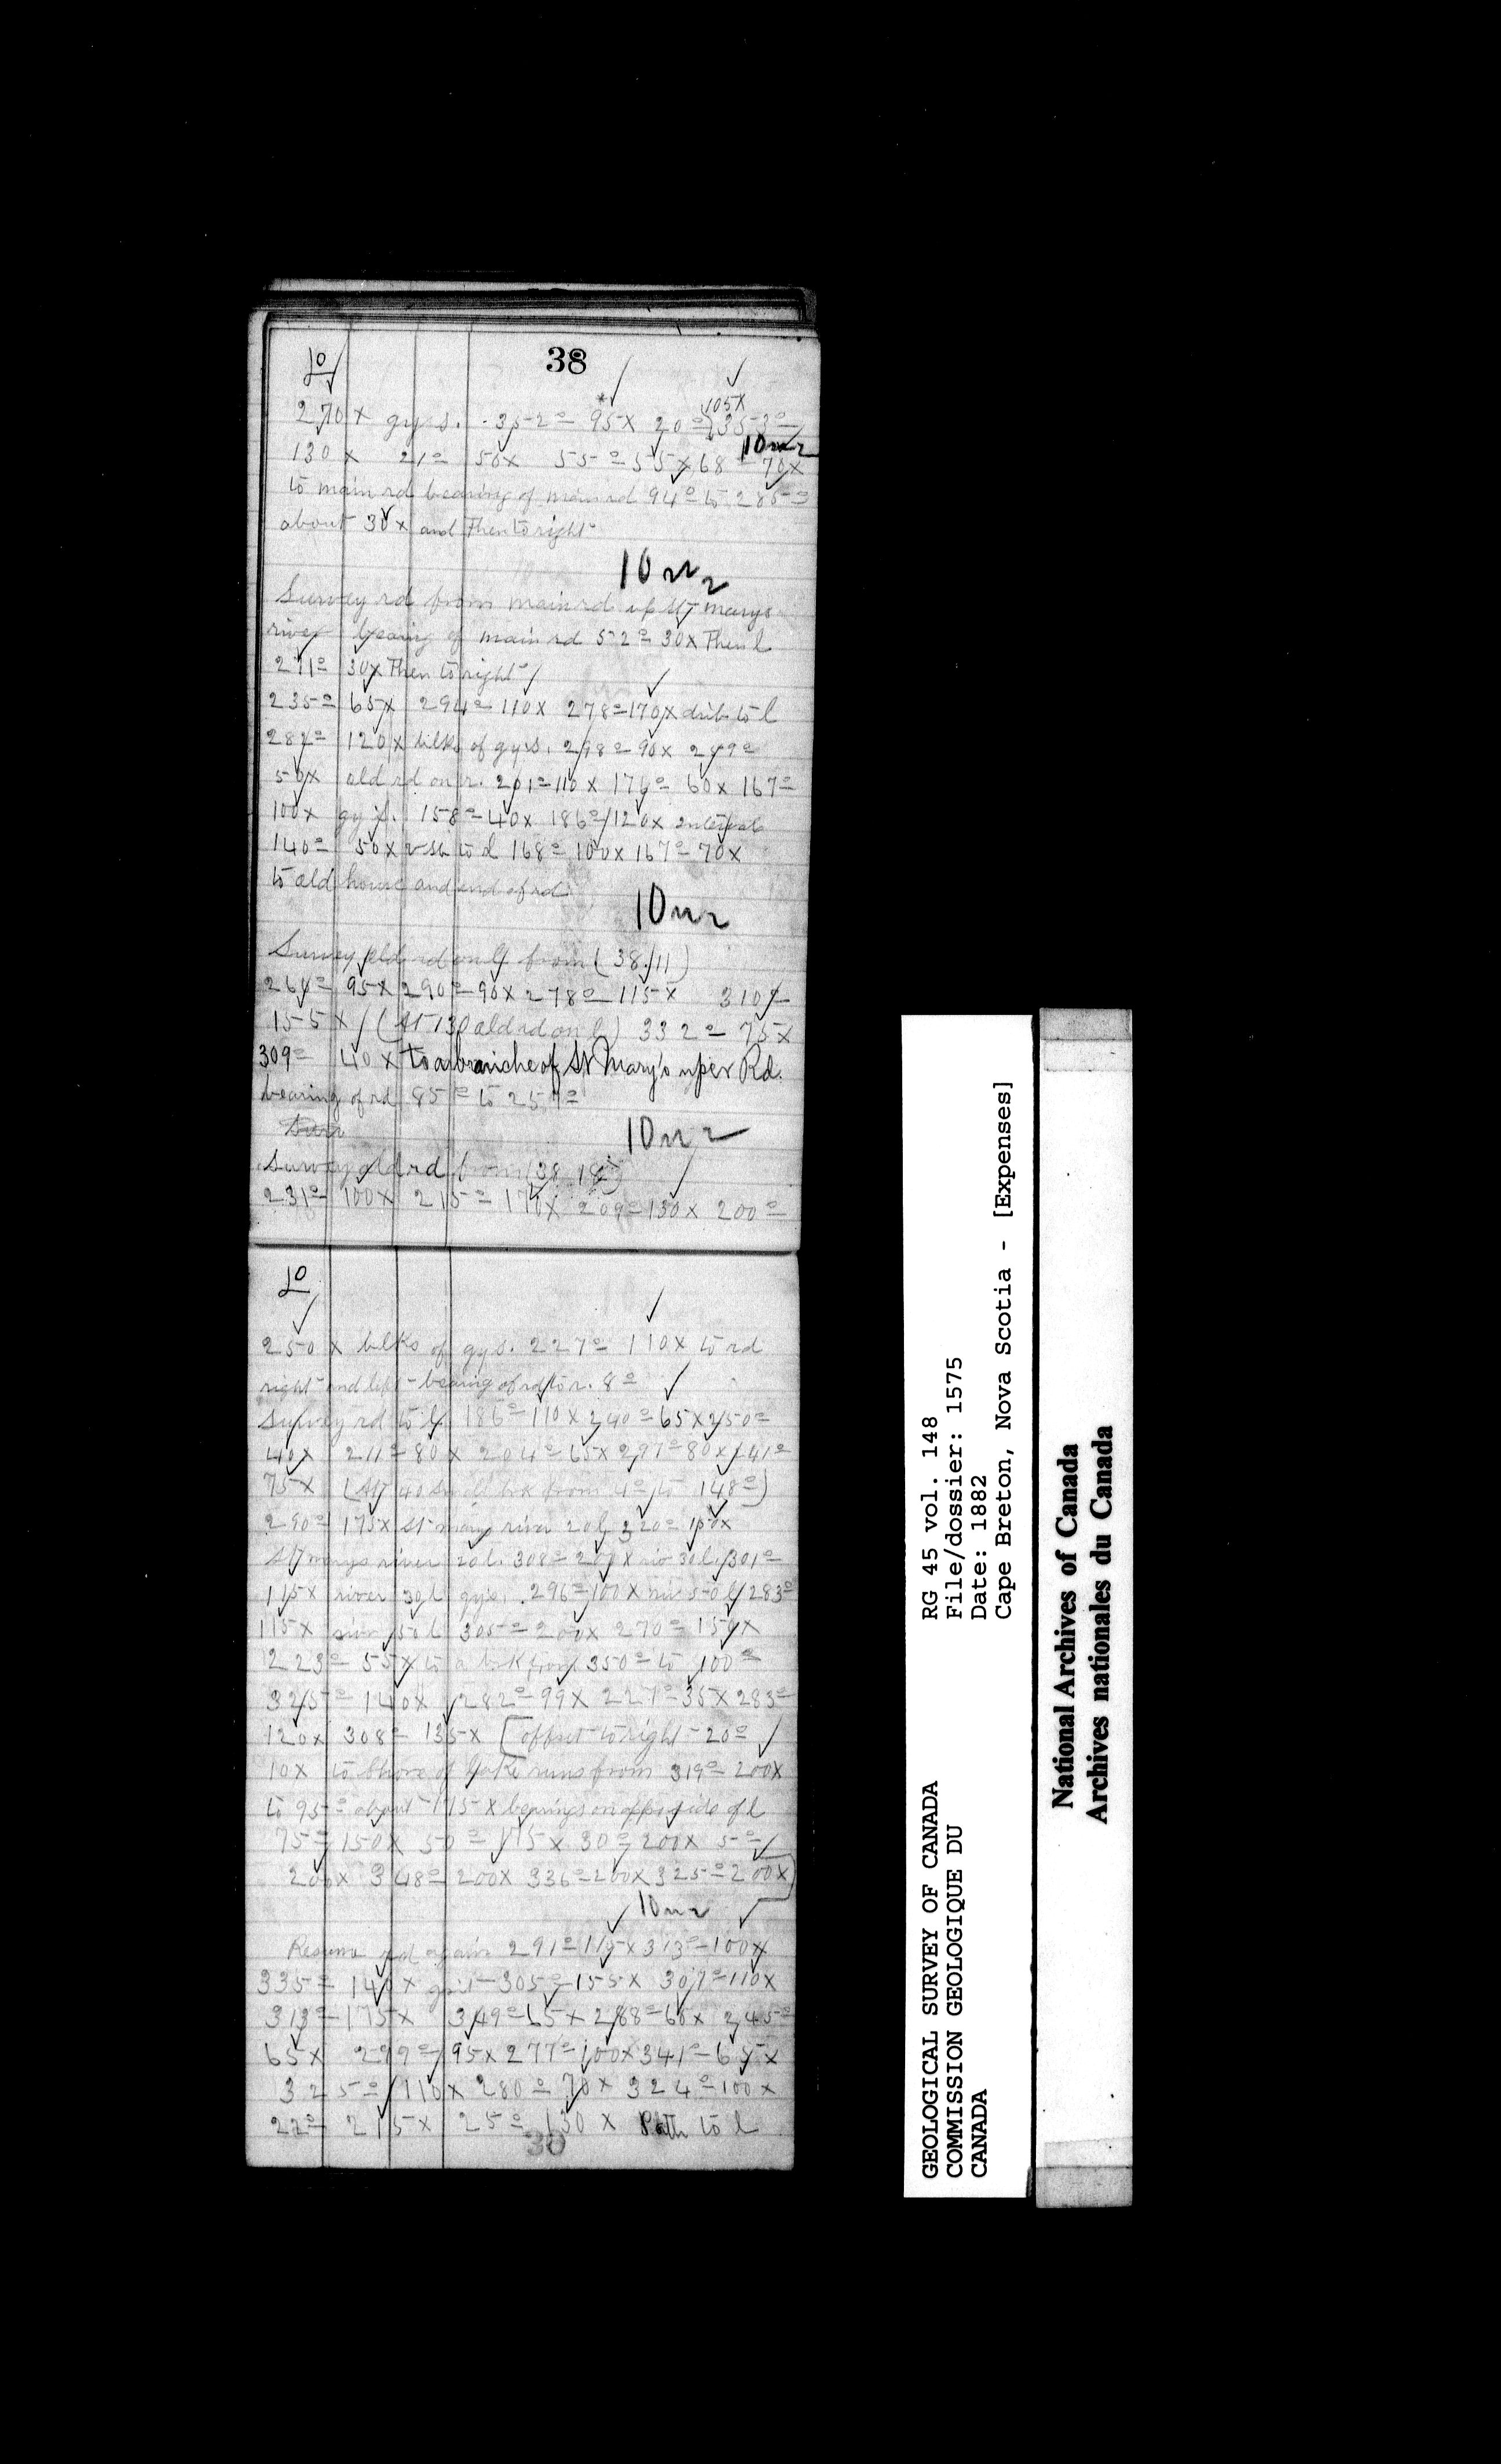 38
270 x gys. 352° 95x 20° 353°
105x
10m2
130 x 21° 50x 55° 55x 68° 70x
to main rd bearing of main rd 94° to 285°
about 30x and then to right
10m2
Survey rd from main rd up St marys
river bearing of main rd 52° 30x Then l
271° 30x Then to right
235° 65x 294° 110x 278° 170x to l
287° 120x blks of gys. 298° 90x 249°
50x old rd on r. 201° 110x 176° 60x 167°
100x gys. 158° 40x 186° 120x
140° 50x to l 168° 100x 167° 70x
to old house and end of rd
10m2
Survey old rd on from (38/11)
264° 95x 290° 90x 278° 115x 310°
155x (At 130 old rd on l) 332° 75x
309° 40x to a branche of St Mary's uper Rd.
bearing of rd 85° to 257°
10m2
Survey old rd from (38
231° 100x 215° 170x 209° 130x 200°
250 x blks of gys. 227° 110x to rd
right and left bearing of rd to r. 8°
Survey rd to l. 186° 110x 240° 65x 250°
40x 211° 80x 204° 65x 297° 80x 241°
75x (At 40 small bk from 4° to 148°)
290° 175x St marys river 20 l 320° 150x
St marys river 20 l. 308° 200x riv 30 l. 301°
115x river 30 l gys. 296° 100x riv 50 l 283°
115x riv 50 l 305° 200x 270° 150x
223° 55x to a bk from 350° to 100°
325° 140x 282° 99x 227° 35x 283°
120x 308° 135x [offset to right 20°
10x to shore of lake runs from 319° 200x
to 95° about 175x bearings on opps side of l
75° 150x 50° 175x 30° 200x 5°
200x 348° 200x 336° 200x 325° 200x]
10m2
Resume rd again 291° 115x 313° 100x
335° 140x 305° 155x 307° 110x
313° 175x 349° 65x 288° 60x 245°
65x 299° 95x 277° 100x 341° 65x
325° 110x 280° 70x 324° 100x
22° 215x 25° 130x Path to l
GEOLOGICAL SURVEY OF CANADA
COMMISSION GEOLOGIQUE DU
CANADA
RG 45 vol. 148
File/dossier: 1575
Date: 1882
Cape Breton, Nova Scotia - [Expenses]
National Archives of Canada
Archives nationales du Canada